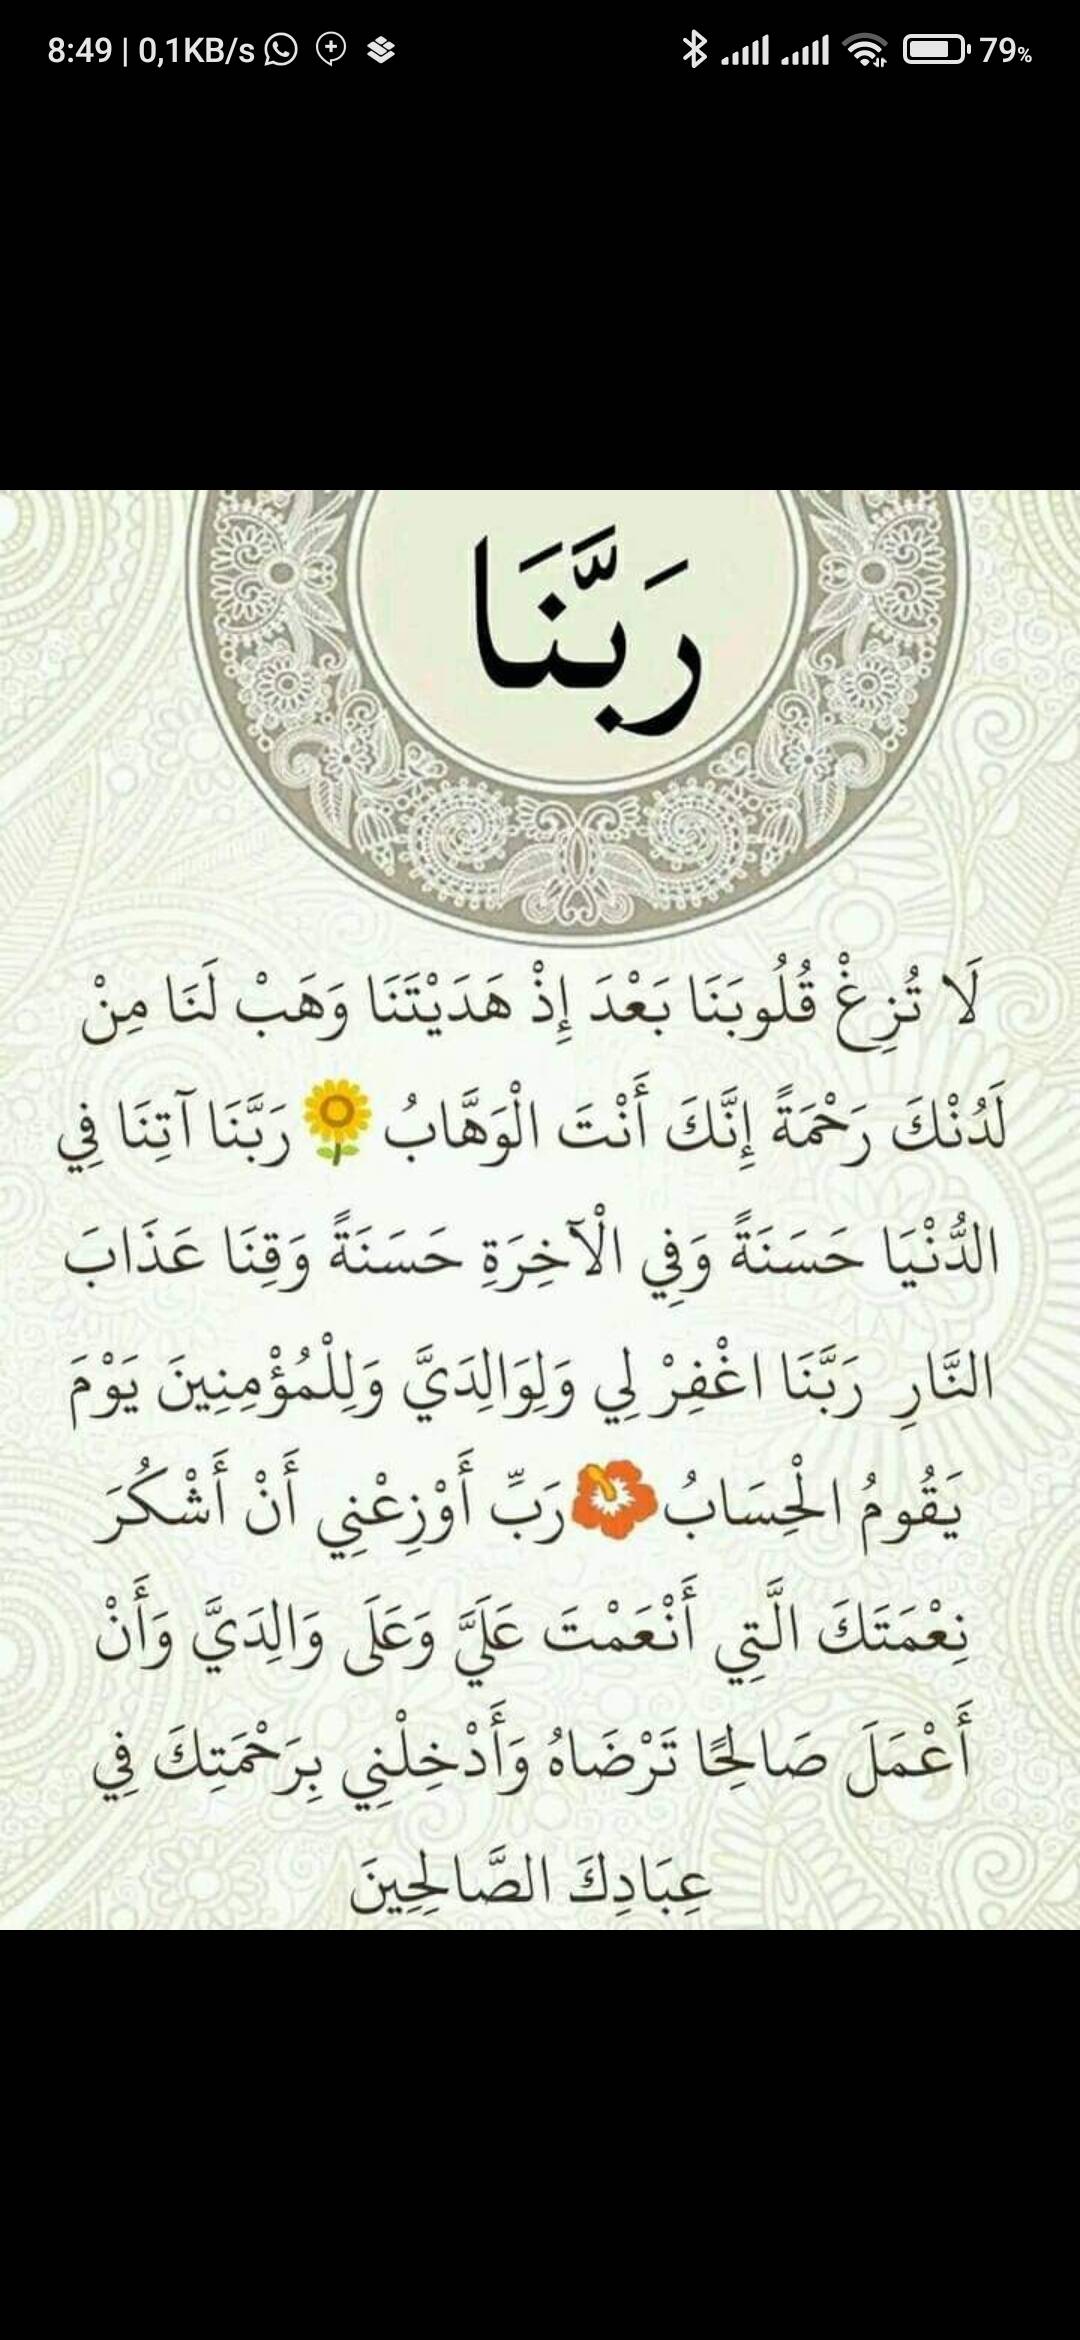 8:49 | 0,1KB/s 79%
رَبَّنَا
لَا تُزِغْ قُلُوبَنَا بَعْدَ إِذْ هَدَيْتَنَا وَهَبْ لَنَا مِنْ
لَدُنْكَ رَحْمَةً إِنَّكَ أَنْتَ الْوَهَّابُ 🌻 رَبَّنَا آتِنَا فِي
الدُّنْيَا حَسَنَةً وَفِي الْآخِرَةِ حَسَنَةً وَقِنَا عَذَابَ
النَّارِ رَبَّنَا اغْفِرْ لِي وَلِوَالِدَيَّ وَلِلْمُؤْمِنِينَ يَوْمَ
يَقُومُ الْحِسَابُ 🌺 رَبِّ أَوْزِعْنِي أَنْ أَشْكُرَ
نِعْمَتَكَ الَّتِي أَنْعَمْتَ عَلَيَّ وَعَلَى وَالِدَيَّ وَأَنْ
أَعْمَلَ صَالِحًا تَرْضَاهُ وَأَدْخِلْنِي بِرَحْمَتِكَ فِي
عِبَادِكَ الصَّالِحِينَ